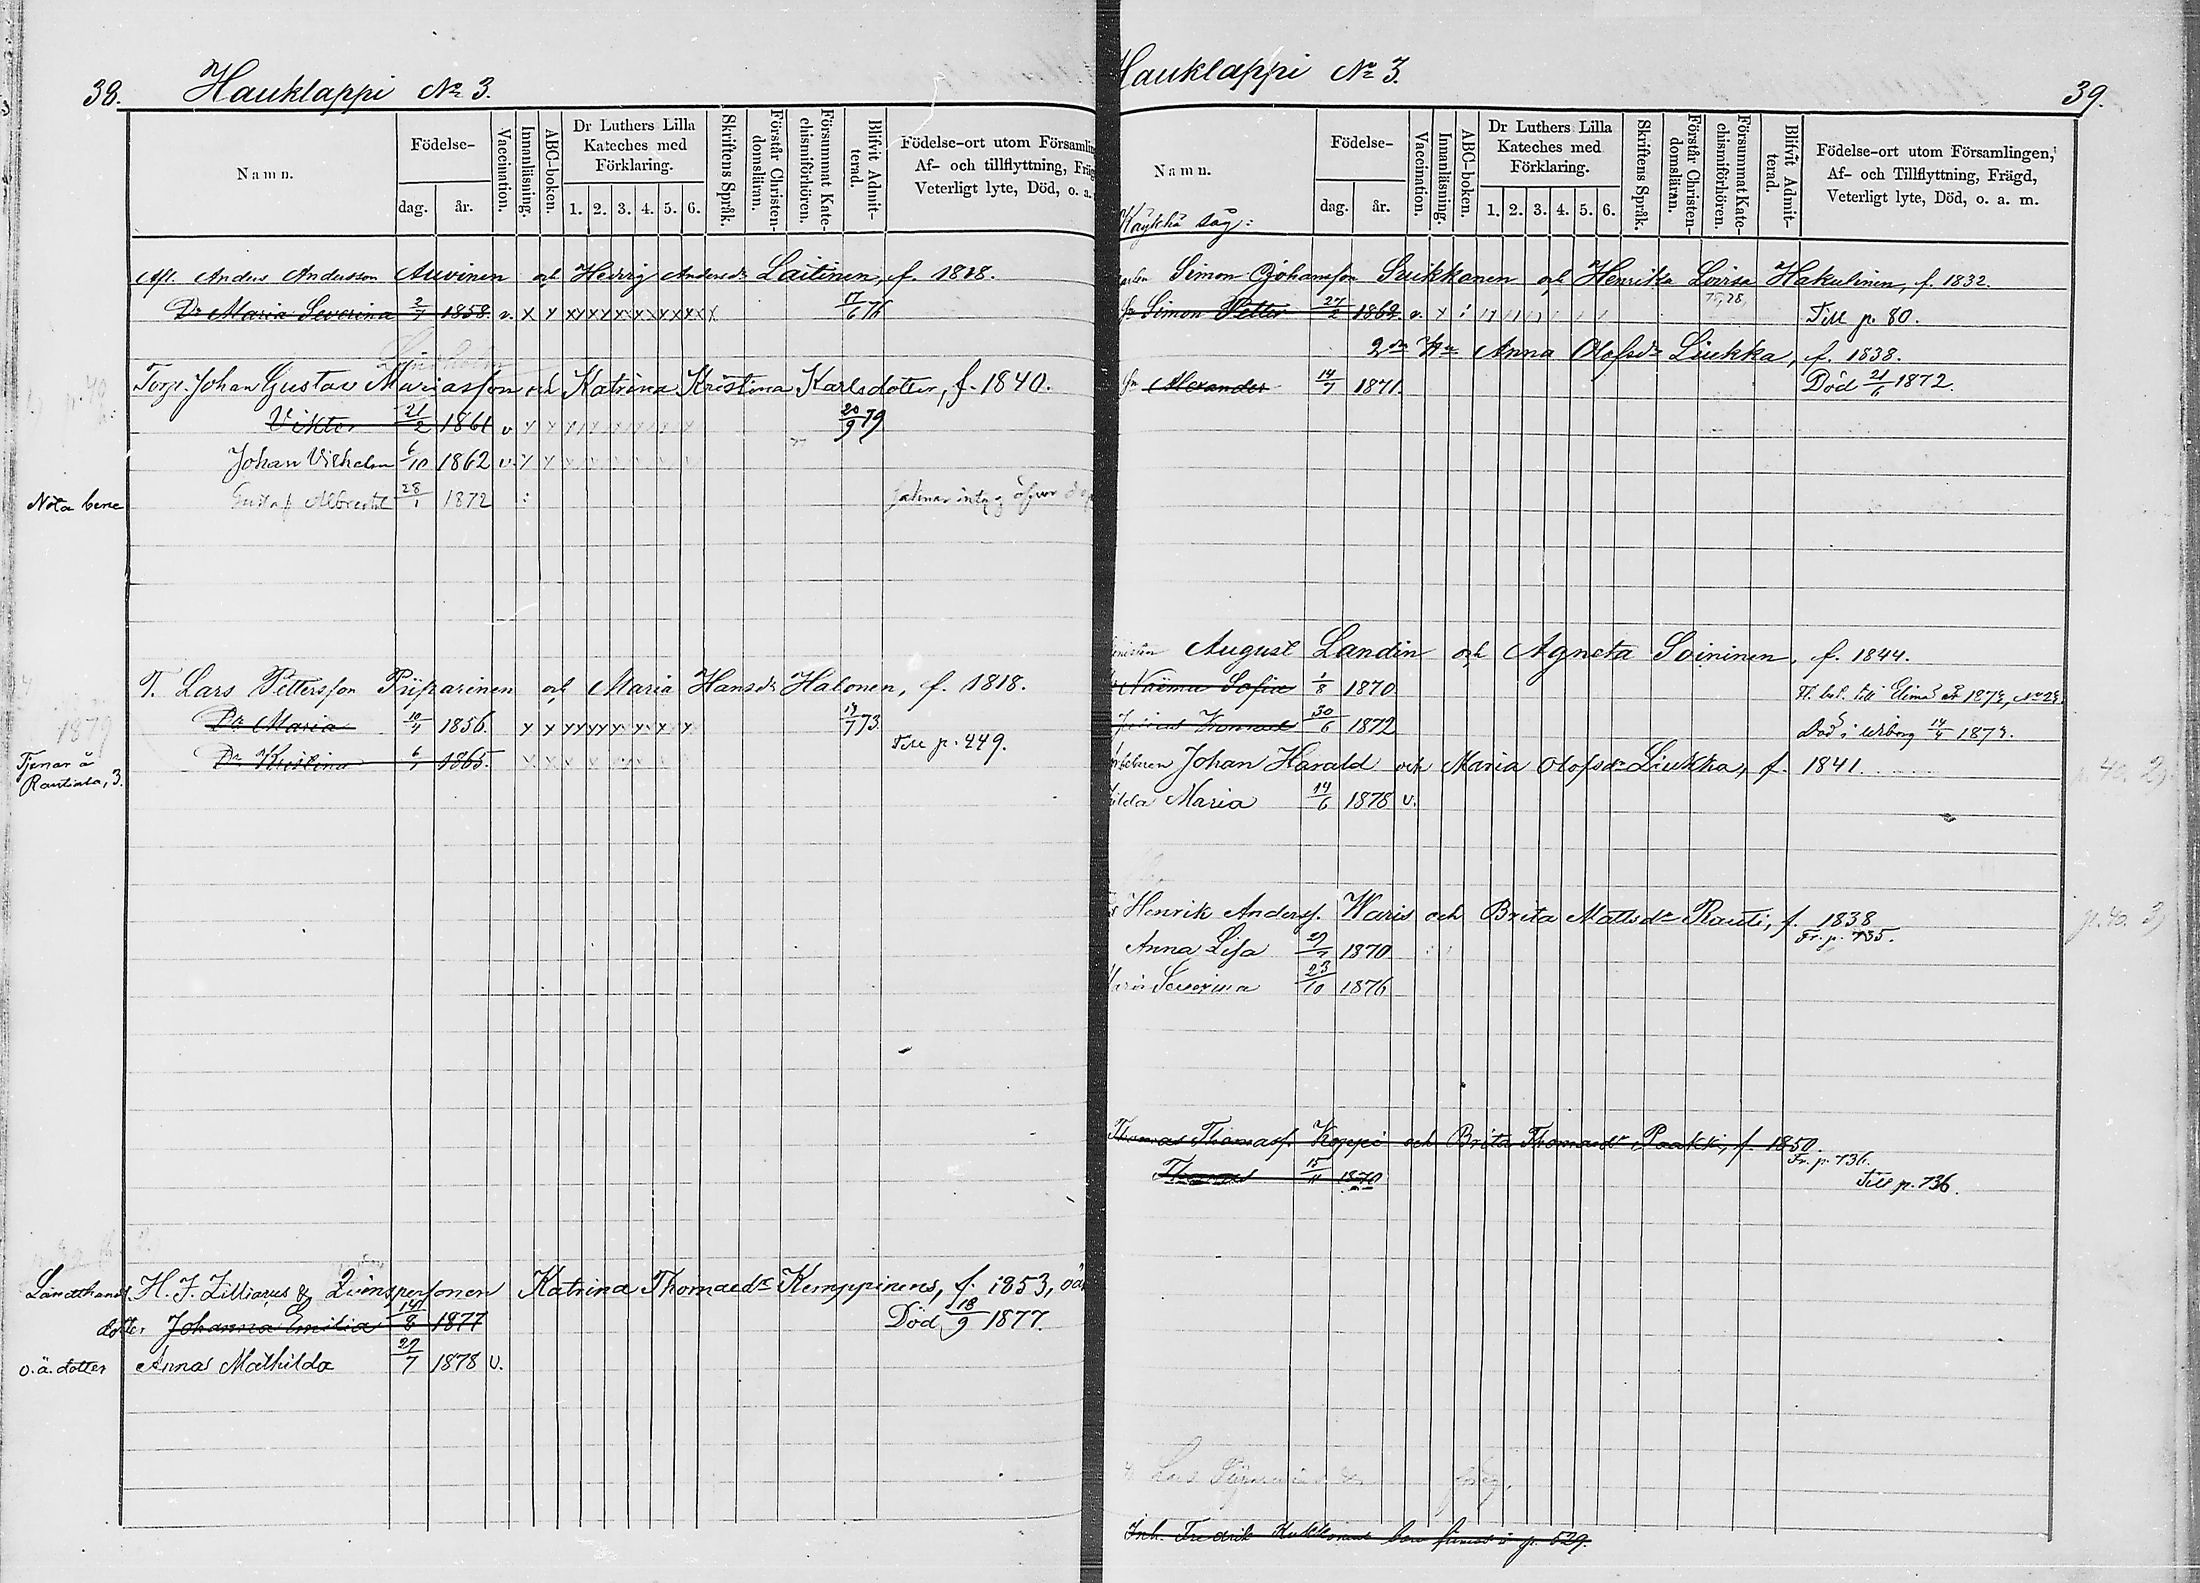 38. Hauklappi No 3.
Namn.
Födelse-
dag. år.
Vaccination.
Innanläsning.
ABC-boken.
Dr Luthers Lilla Kateches med Förklaring.
1. 2. 3. 4. 5. 6.
Skriftens Språk.
Förstår Christen-domsläran.
Försummat Kate-chismiförhören.
Blifvit Admit-terad.
Födelse-ort utom Församlin
Af- och tillflyttning, Fräg
Veterligt lyte, Död, o. a.
Anders Andersson Auvinen och Hedvig Andersdr Laitinen, f. 1818.
Dr Maria Severina 2/7 1858. v. x x x x x x x x x 17/6 76
Torp. Johan Gustav Mariasson och Katrina Kristina Karlsdotter, f. 1840.
Viktor 21/2 1861 v 20/9 79
Johan Vilhelm 6/10 1862 v.
Nota bene Gustaf Albrecht 28/1 1872
T. Lars Pettersson Piiparinen och Maria Hansdr Halonen, f. 1818.
Dr Maria 10/4 1856. x x x x x x x x 73.
1879
Till p. 449.
Dr Kristina 1865.
Tjenar å Rautiala, 3.
Landthandl. H. F. Zilliacus & Qvinspersonen Katrina Thomaedr Kemppinens, f. 1853, oä
dotter Johanna Emilia 14/8 1877 Död 18/9 1877.
o.ä. dotter Anna Mathilda 29/7 1878 v.
Hauklappi No 3. 39.
Namn.
Födelse-
dag. år.
Vaccination.
Innanläsning.
ABC-boken.
Dr Luthers Lilla Kateches med Förklaring.
1. 2. 3. 4. 5. 6.
Skriftens Språk.
Förstår Christen-domsläran.
Försummat Kate-chismiförhören.
Blifvit Admit-terad.
Födelse-ort utom Församlingen,
Af- och Tillflyttning, Frägd,
Veterligt lyte, Död, o. a. m.
Käykkä såg:
Simon Johansson Suikkanen och Henrika Lovisa Hakulinen, f. 1832.
Simon Petter 27/2 1862. v. Till p. 80.
Anna Olofsdr Liukka, f. 1838.
Alexander 14/7 1871. Död 21/6 1872.
August Landin och Agneta Soininen, f. 1844.
Naëma Sofia 1/8 1870
30/6 1872
Johan Harald och Maria Olofsdr Liukka, f. 1841.
Maria 14/6 1878 v.
Henrik Anderss. Waris och Brita Mattsdr Rauti, f. 1838
Fr. p. 735.
Anna Lisa 1870
Severina 23/10 1876
Thomas Thomass. Koppi och Brita Thomaedr Paakki, f. 1850.
Fr. p. 736.
Thomas 15/11 1870 Till p. 736.
Inh. Fredrik p. 529.